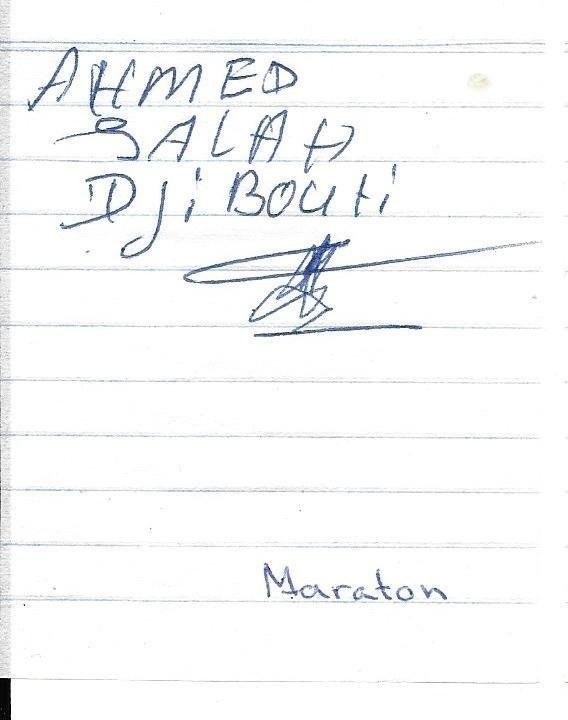 AHMED
SALAH
DjiBOUti
Maraton